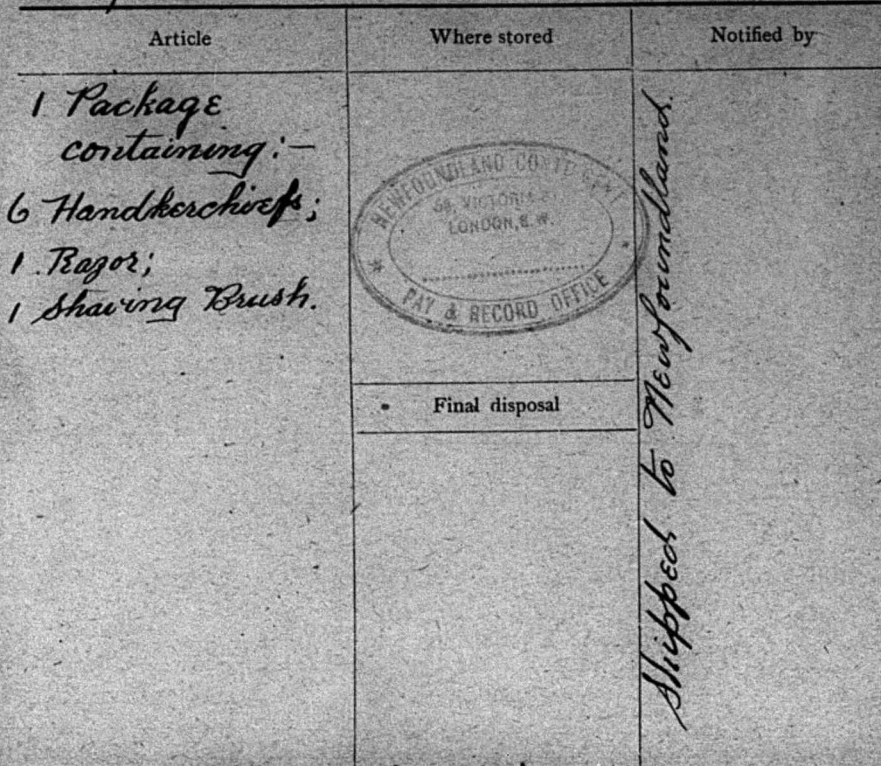 Article
Where stored
Notified by
1 Package
containing:—
6 Handkerchiefs;
1 Razor;
1 Shaving Brush.
NEWFOUNDLAND CONTINGENT
58, VICTORIA ST.
LONDON, S.W.
PAY & RECORD OFFICE
Final disposal
Shipped to Newfoundland.